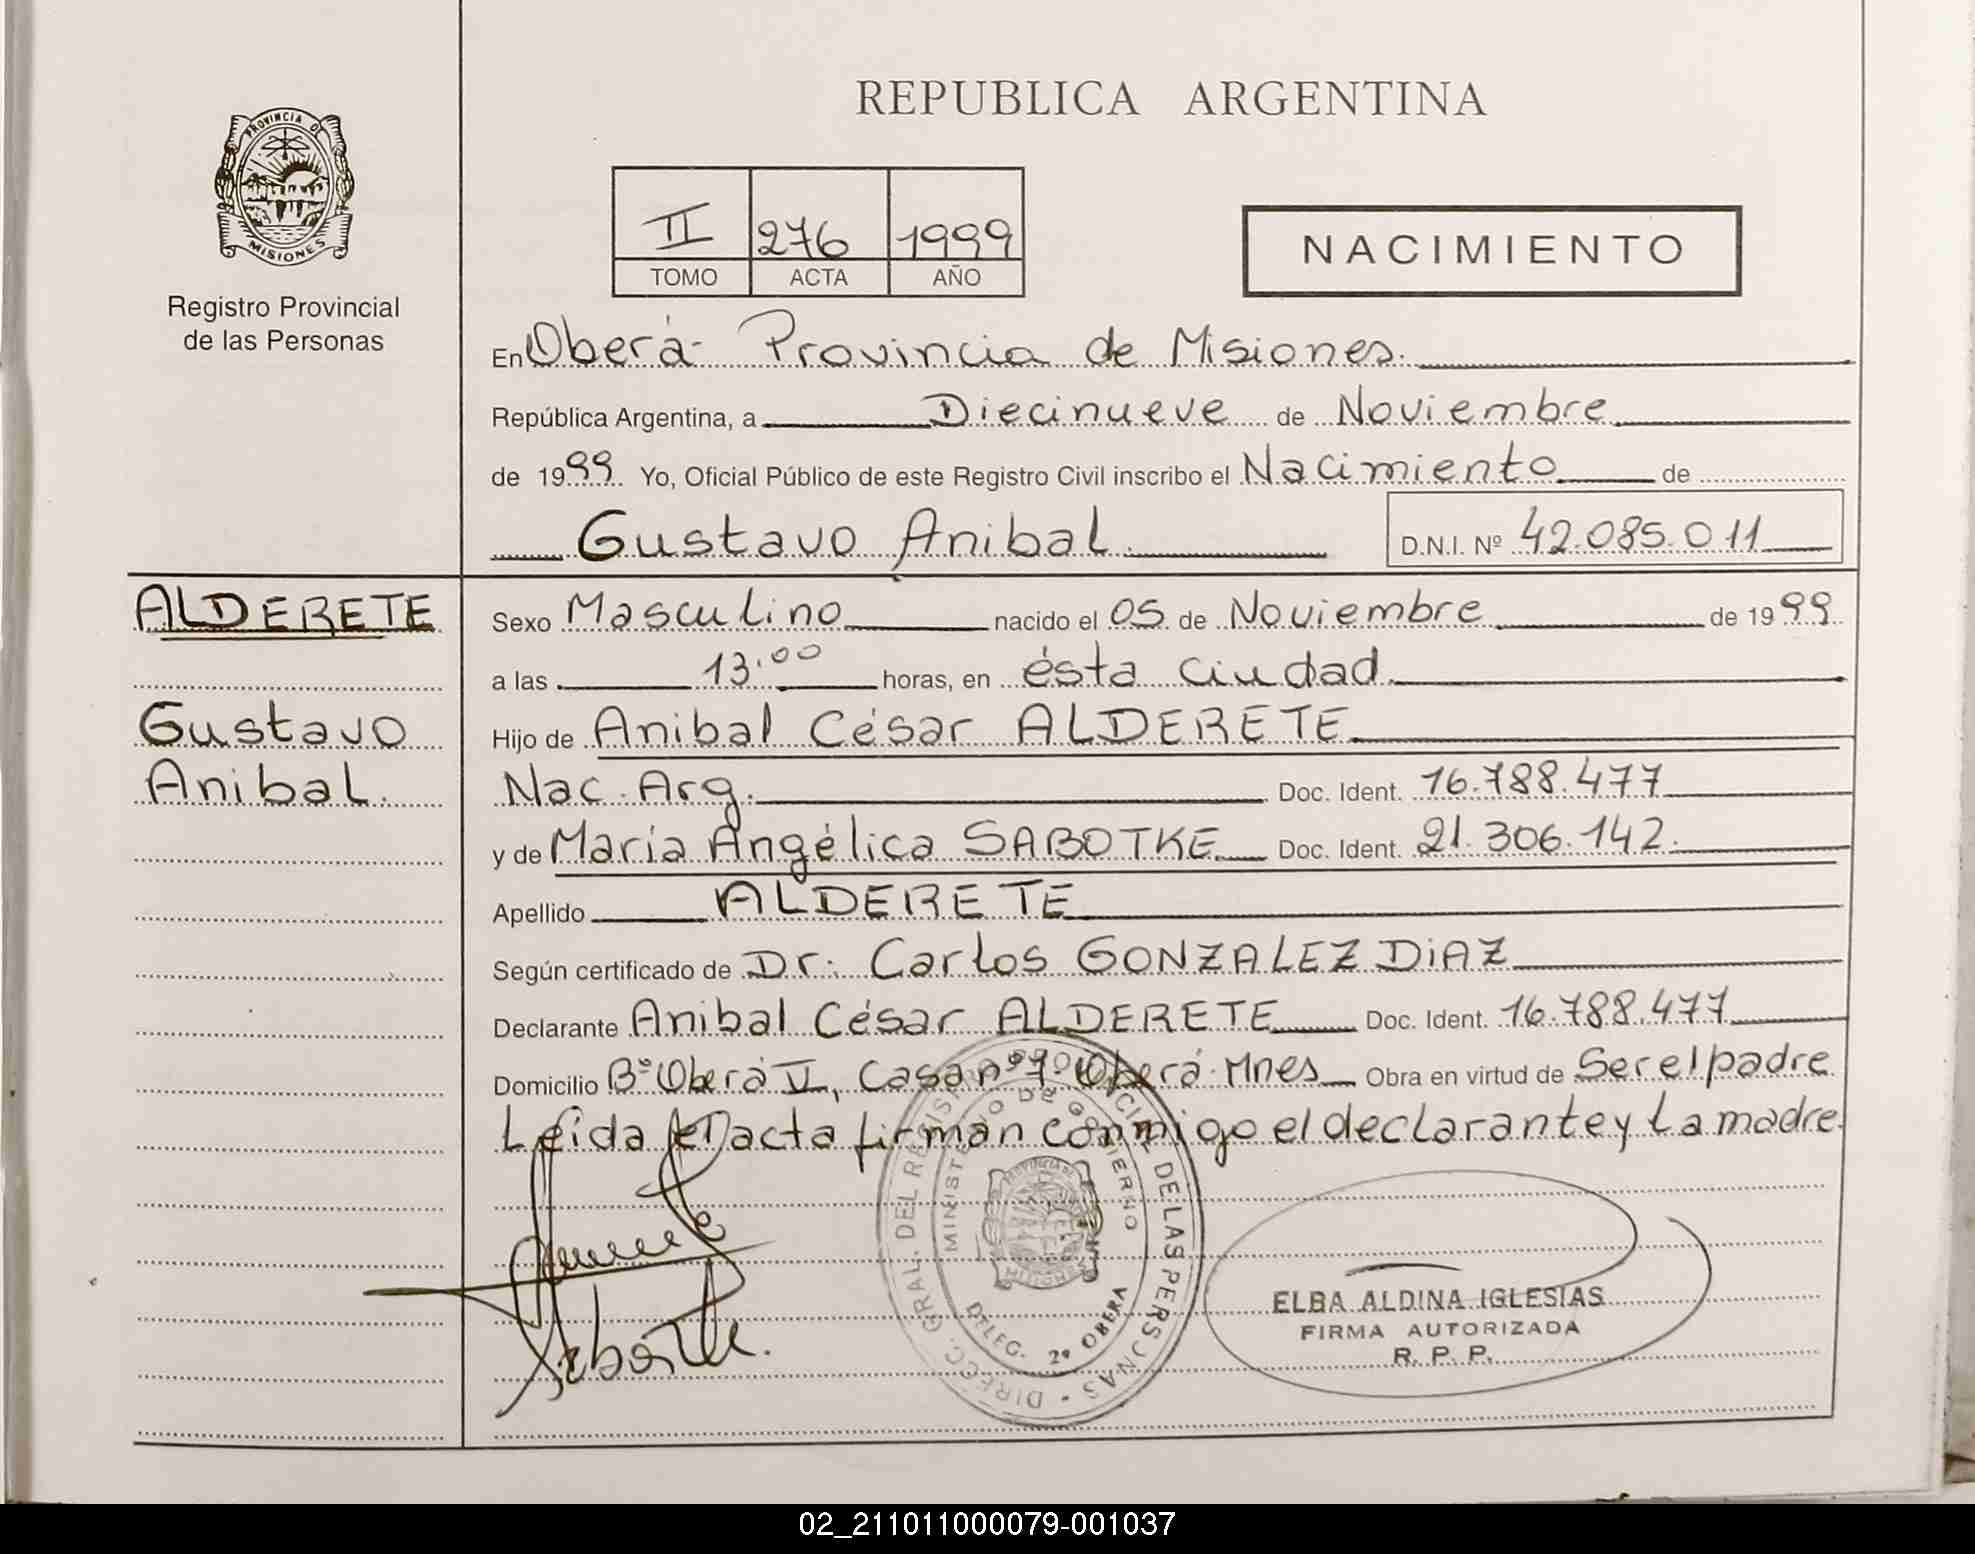 REPUBLICA ARGENTINA
PROVINCIA DE
MISIONES
Registro Provincial
de las Personas
II 276 1999
TOMO ACTA AÑO
NACIMIENTO
En Oberá - Provincia de Misiones.
República Argentina, a Diecinueve de Noviembre
de 1999. Yo, Oficial Público de este Registro Civil inscribo el Nacimiento de
Gustavo Anibal. D.N.I. Nº 42.085.011
ALDERETE
Gustavo
Anibal.
Sexo Masculino nacido el 05 de Noviembre de 1999
a las 13:00 horas, en ésta Ciudad.
Hijo de Anibal César ALDERETE
Nac. Arg. Doc. Ident. 16.788.477
y de María Angélica SABOTKE Doc. Ident. 21.306.142.
Apellido ALDERETE
Según certificado de Dr. Carlos GONZALEZ DiAZ
Declarante Anibal César ALDERETE Doc. Ident. 16.788.477
Domicilio Bº Oberá II, Casa nº 7 - Oberá - Mnes Obra en virtud de Ser el padre
Leída el acta firman conmigo el declarante y La madre.
DIRECC. GRAL. DEL REGISTRO PROVINCIAL DE LAS PERSONAS
MINISTERIO DE GOBIERNO
DELEG. 2ª OBERA
ELBA ALDINA IGLESIAS
FIRMA AUTORIZADA
R. P. P.
02_211011000079-001037